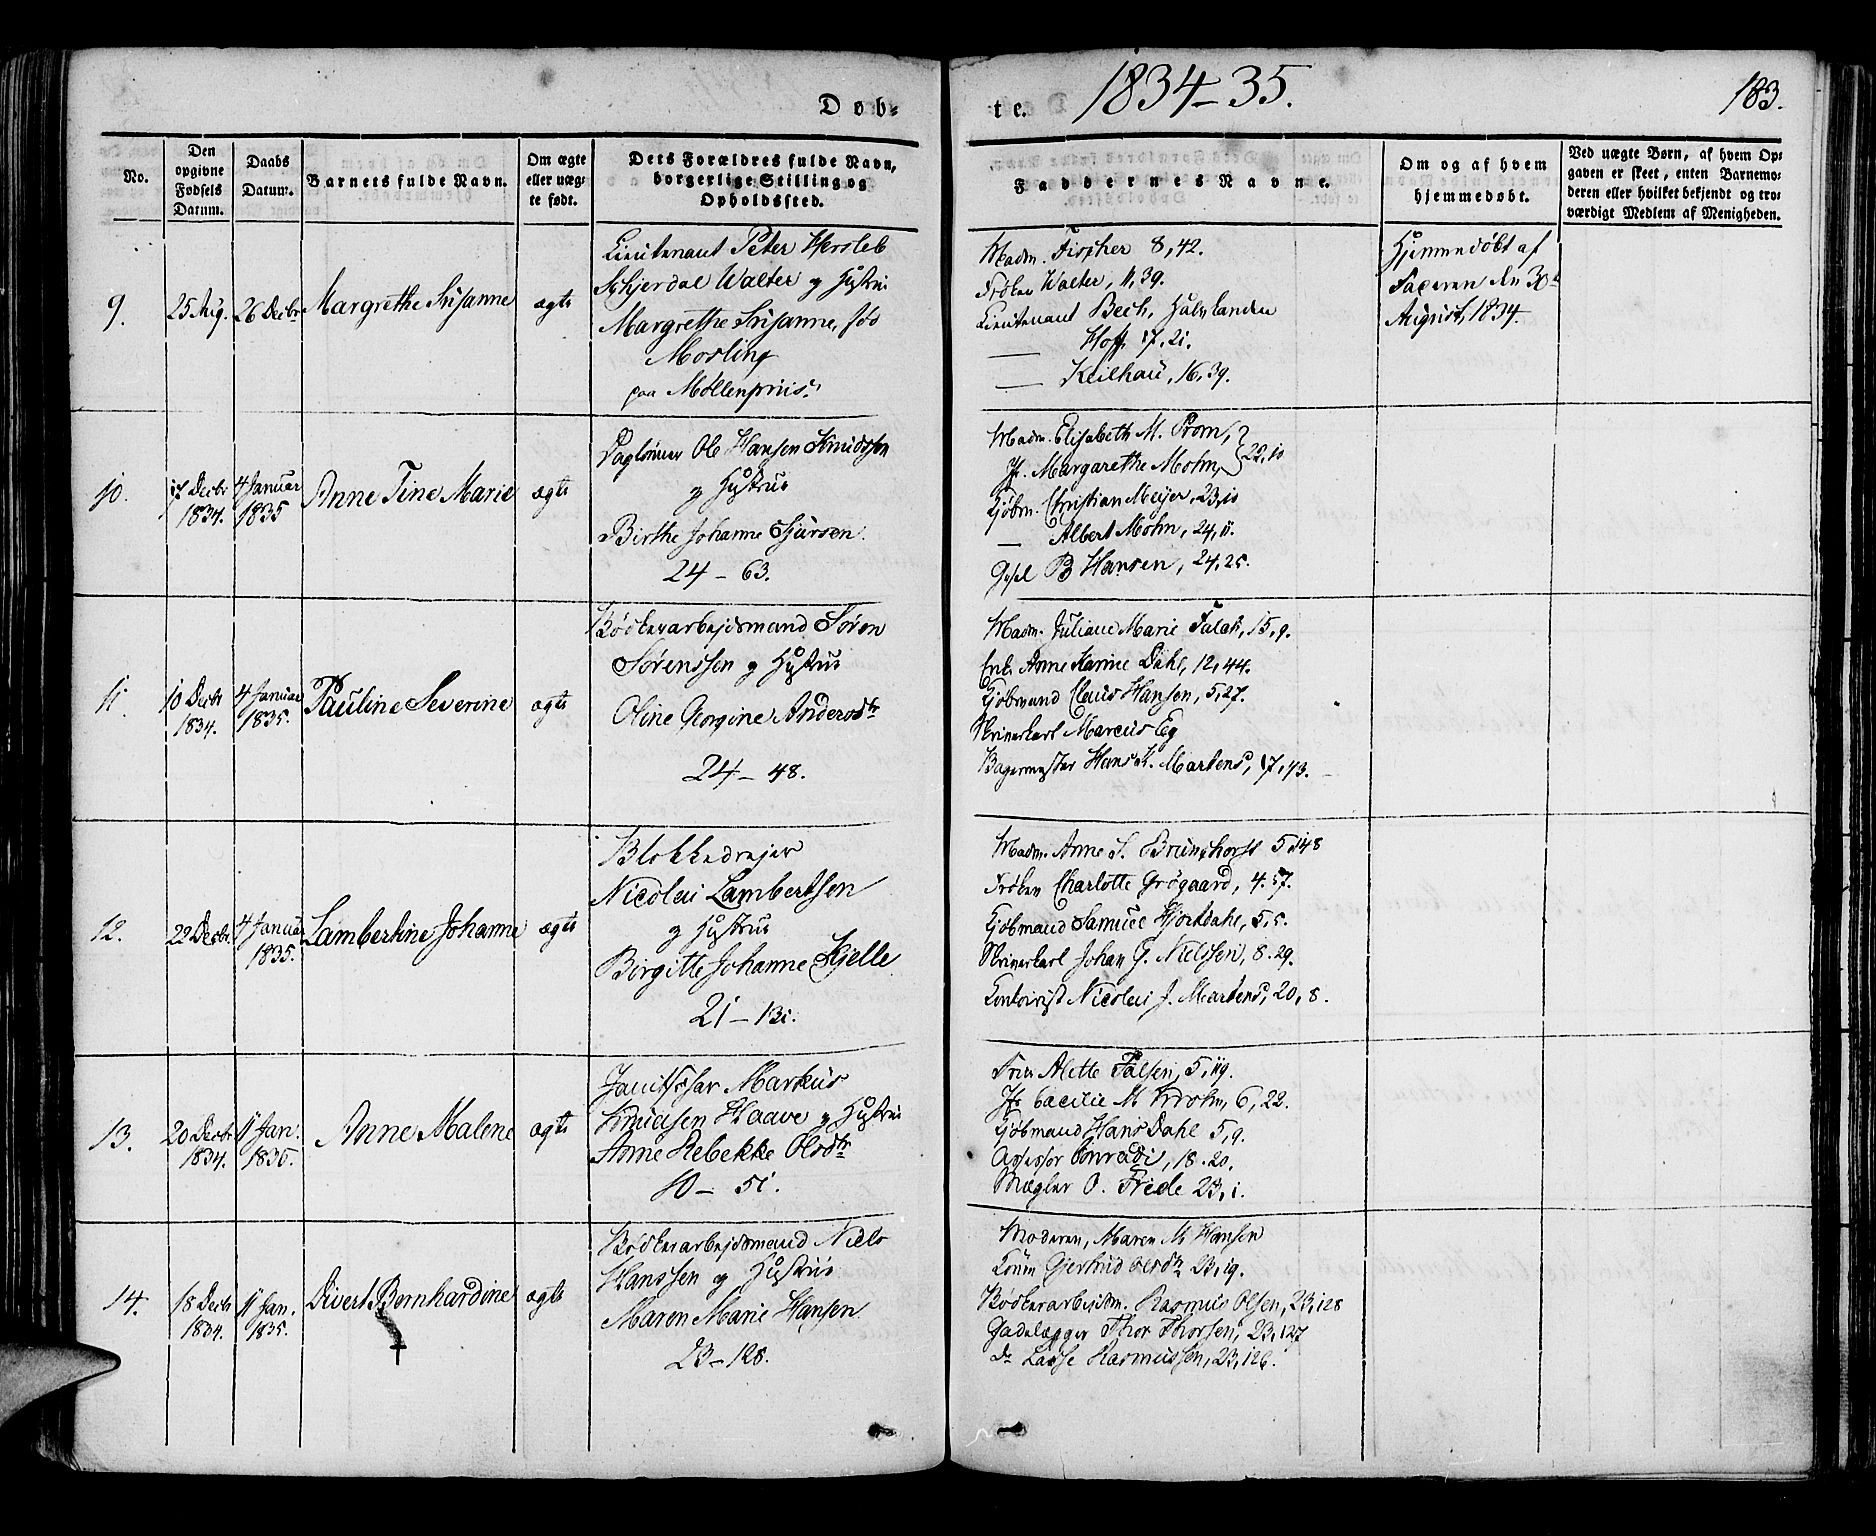 Døb-
te. 1834-35. 183.
No.
Den opgivne Fødsels Datum.
Daabs Datum.
Barnets fulde Navn.
Om ægte eller uægte født.
Dets Forældres fulde Navn, borgerlige Stilling og Opholdssted.
Faddernes Navne.
Om og af hvem hjemmedøbt.
Ved uægte Børn, af hvem Opgaven er skeet, enten Barnemoderen eller hvilket bekjendt og troværdigt Medlem af Menigheden.
9. 25 Aug. 26 Decbr Margrethe Susanne ægte
Lieutenant Peter Hersleb
Schjerdal Walter og Hustrue
Margrethe Susanne, fød
Mosling
paa Møllenpriis.
Madm. Fischer 8,42.
Frøken Walter, 11,39.
Lieutenant Bech,
Hoff. 17,21.
— Keilhau, 16,39.
Hjemmedøbt af
Faderen den 30te
August, 1834.
10. 17 Decbr 1834. 4 Januar 1835 Anne Tine Marie ægte
Daglønner Ole Hansen Knudssen
og Hustrue
Birthe Johanne Sjursen
24 - 63.
Madm. Elisabeth M. Prom,
Jfr. Margarethe Mohn, } 22,10
Kjøbm. Christian Meijer, 23,10
— Albert Mohn, 24,11.
Gesel B Hansen, 24,25.
11. 10 Decbr 1834. 4 Januar 1835. Pauline Severine ægte
Bødkerarbejdsmand Søren
Sørenssen og Hustrue
Oline Georgine Andersdtr
24 - 48.
Madm. Juliane Marie Falch, 15,9.
Enke Anne Karine Dahl, 12,44.
Kjøbmand Claus Hansen, 5,27.
Skriverkarl Marcus Eg
Bagermester Hans K. Martens, 17,43.
12. 22 Decbr 4 Januar 1835. Lambertine Johanne ægte
Blokkedrejer
Nicolai Lambertsen
og Hustrue
Birgitte Johanne Kjelle
21 - 131.
Madm. Anne S. Brunchorst 5,148
Frøken Charlotte Grøgaard, 4.57.
Kjøbmand Samuel Hjortdahl, 5,5.
Skriverkarl Johan G. Nielssen, 8.29.
Contoirist Nicolai J. Martens, 20,8.
13. 20 Decbr 1834. 11 Jan. 1835. Anne Malene ægte
Markus
Knudsen Haave og Hustrue
Anne Rebekke Olsdtr
10 - 51.
Frue Alette Falsen, 5,119.
Jfr Cæcilie M. Krohn, 6,22.
Kjøbmand Hans Dahl 5,9.
Assessor Conradi, 18.20.
Mægler O. Friele 23,1.
14. 18 Decbr 1834. 11 Jan. 1835. Divert Bernhardine ægte
Bødkerarbejdsmand Niels
Hanssen og Hustrue
Maren Marie Hansen
23 - 128.
Moderen, Maren M. Hansen
Konen Gjertrud Olsdtr 23,19.
Bødkerarbejdsm. Rasmus Olsen, 23,128
Gadelægger Thor Thorsen, 23,127
do Lasse Rasmussen, 23,126.